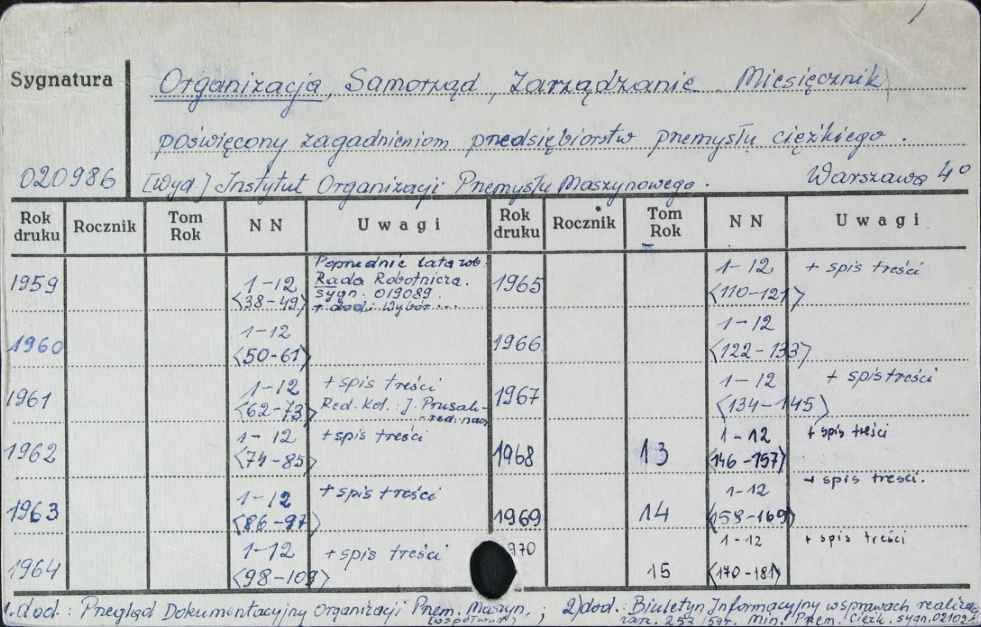 Sygnatura
020986
Organizacja, Samorząd, Zarządzanie. Miesięcznik
poświęcony zagadnieniom przedsiębiorstw przemysłu ciężkiego.
[Wyd] Instytut Organizacji Przemysłu Maszynowego. Warszawa 4°
Rok druku Rocznik Tom Rok NN Uwagi Rok druku Rocznik Tom Rok NN Uwagi
1959 1-12 <38-49> Poprzednie lata zob. Rada Robotnicza. sygn. 019089. + dod: Wybór...
1965 1-12 <110-121> + spis treści
1960 1-12 <50-61>
1966 1-12 <122-133>
1961 1-12 <62-73> + spis treści Red. Kol.: J. Prusak-
1967 1-12 <134-145> + spis treści
1962 1-12 <74-85> + spis treści
1968 13 1-12 <146-157> + spis treści
1963 1-12 <86-97> + spis treści
1969 14 1-12 <158-169> + spis treści.
1964 1-12 <98-109> + spis treści
1970 15 1-12 <170-181> + spis treści
1. dod.: Przegląd Dokumentacyjny Organizacji Przem. Maszyn.; 2) dod.: Biuletyn Informacyjny w sprawach
Min. Przem. Ciężk. sygn.